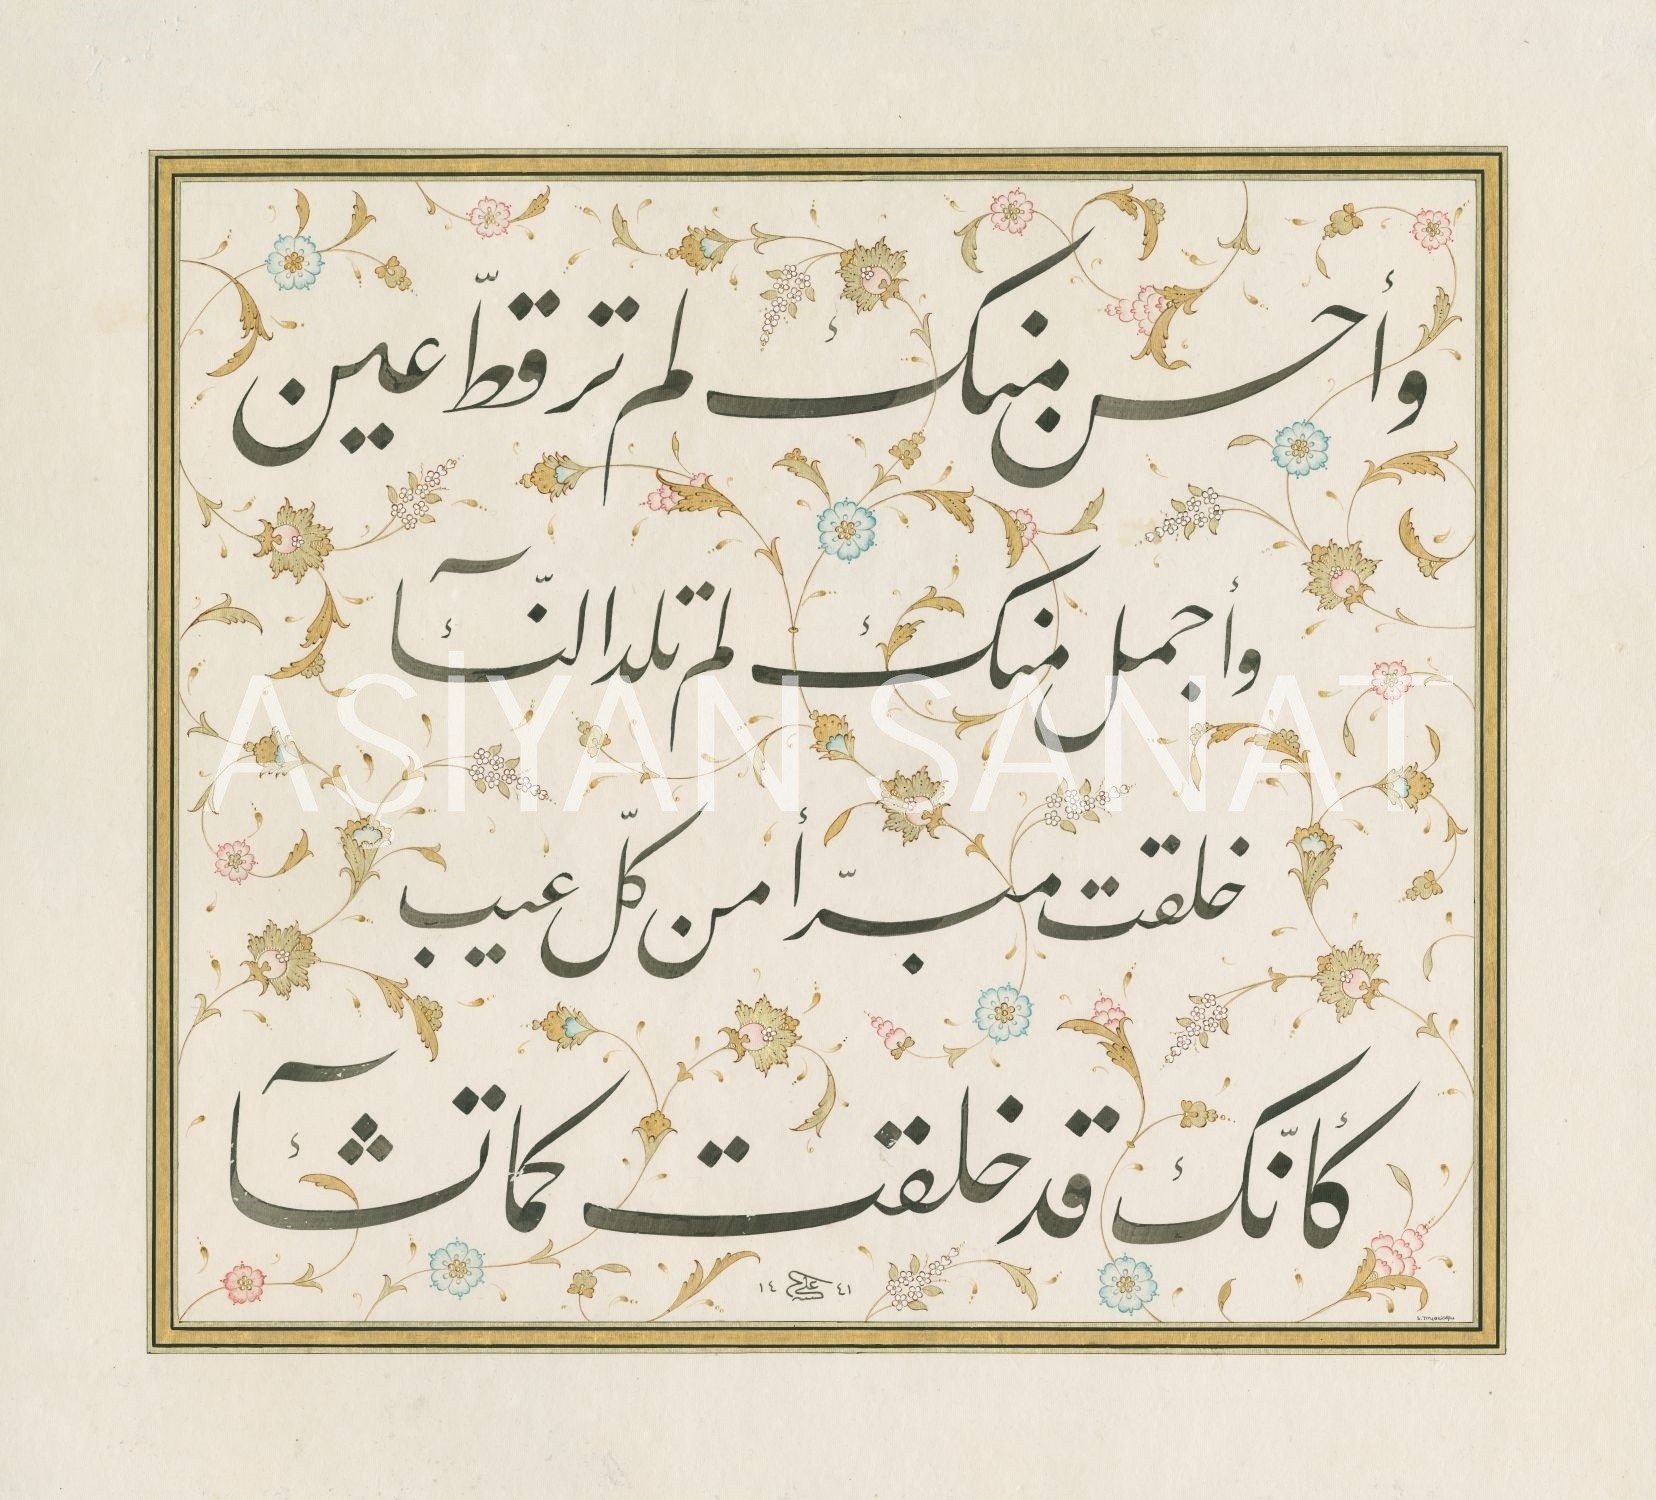 وأحسن منك لم تر قطّ عين
وأجمل منك لم تلد النّسآ
خلقت مبرّأ من كلّ عيب
كأنّك قد خلقت كما تشآ
ASİYAN SANAT
١٤ علي ٤١